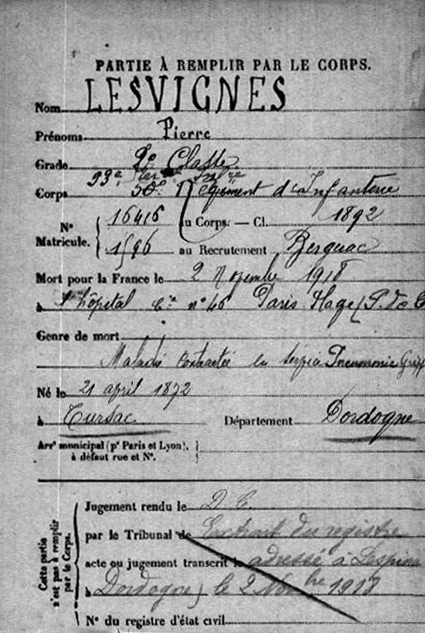 PARTIE À REMPLIR PAR LE CORPS.
Nom LESVIGNES
Prénoms Pierre
Grade 2e Classe
93e
Corps 50e Régiment d'Infanterie
N° Matricule. { 16416 au Corps. — Cl. 1892
1596 au Recrutement Bergerac
Mort pour la France le 2 Novembre 1918
à l'hôpital n° 46 Paris Plage (P. de C
Genre de mort
Maladie contractée en service Pneumonie Gripp
Né le 21 avril 1872
à Tursac Département Dordogne
Arrt municipal (pr Paris et Lyon), à défaut rue et N°.
Cette partie n'est pas à remplir par le Corps.
Jugement rendu le D. C.
par le Tribunal de Extrait du registre
acte ou jugement transcrit le adressé à Lespin
à Dordogne) le 2 Novbre 1918
N° du registre d'état civil